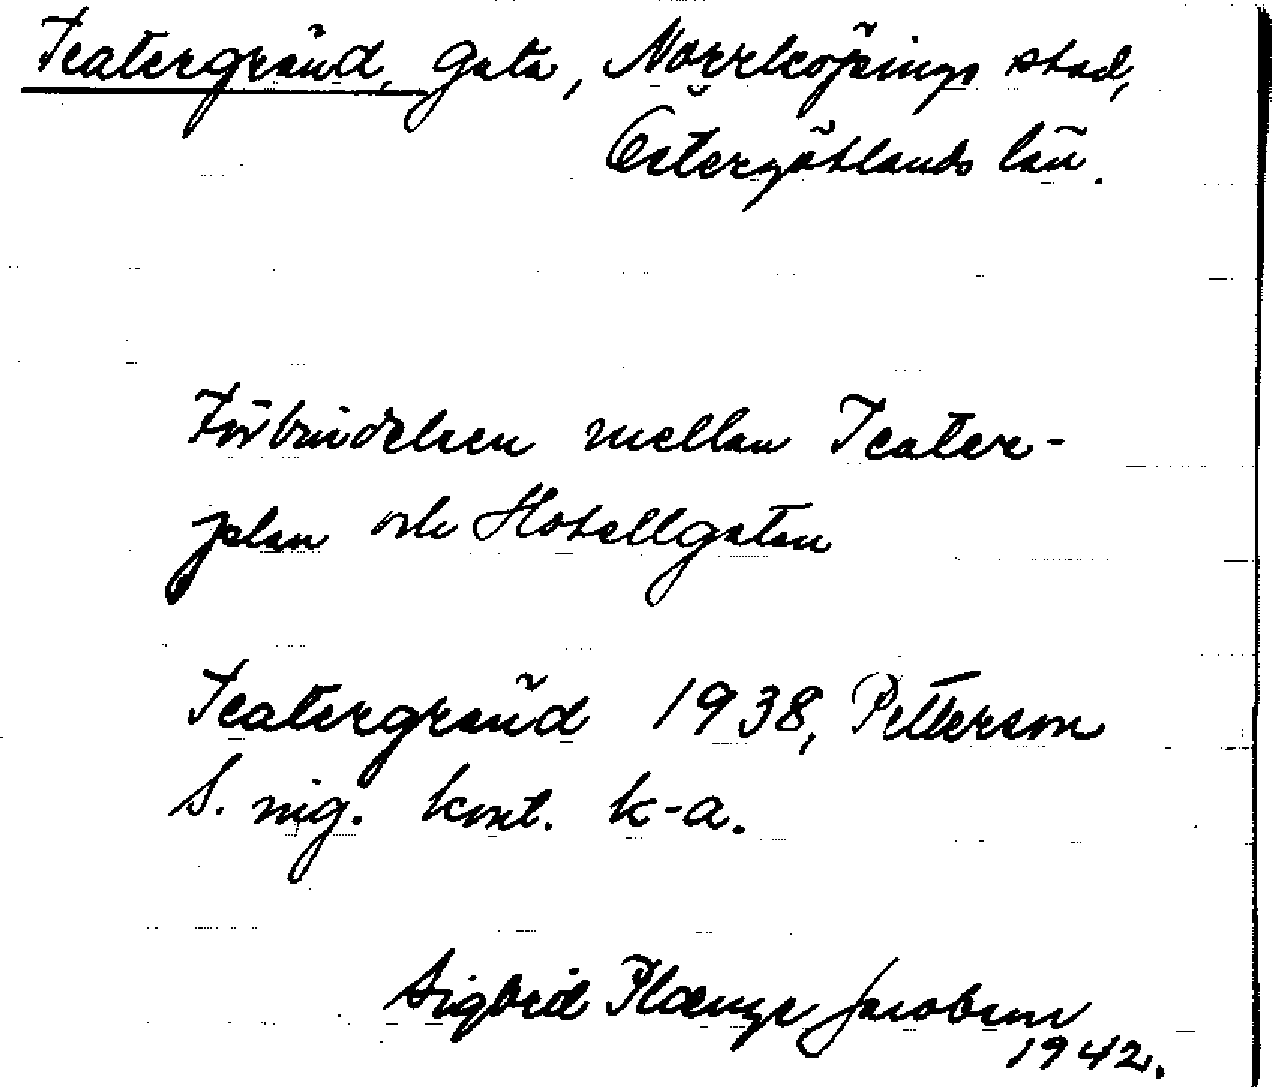 Teatergränd, gata, Norrköpings stad,
Östergötlands län.
Förbindelsen mellan Teater-
plan och Hotellgatan
Teatergränd 1938, Petterson
S. mg. kont. k-a.
Sigbrid Plænge Jacobson
1942.